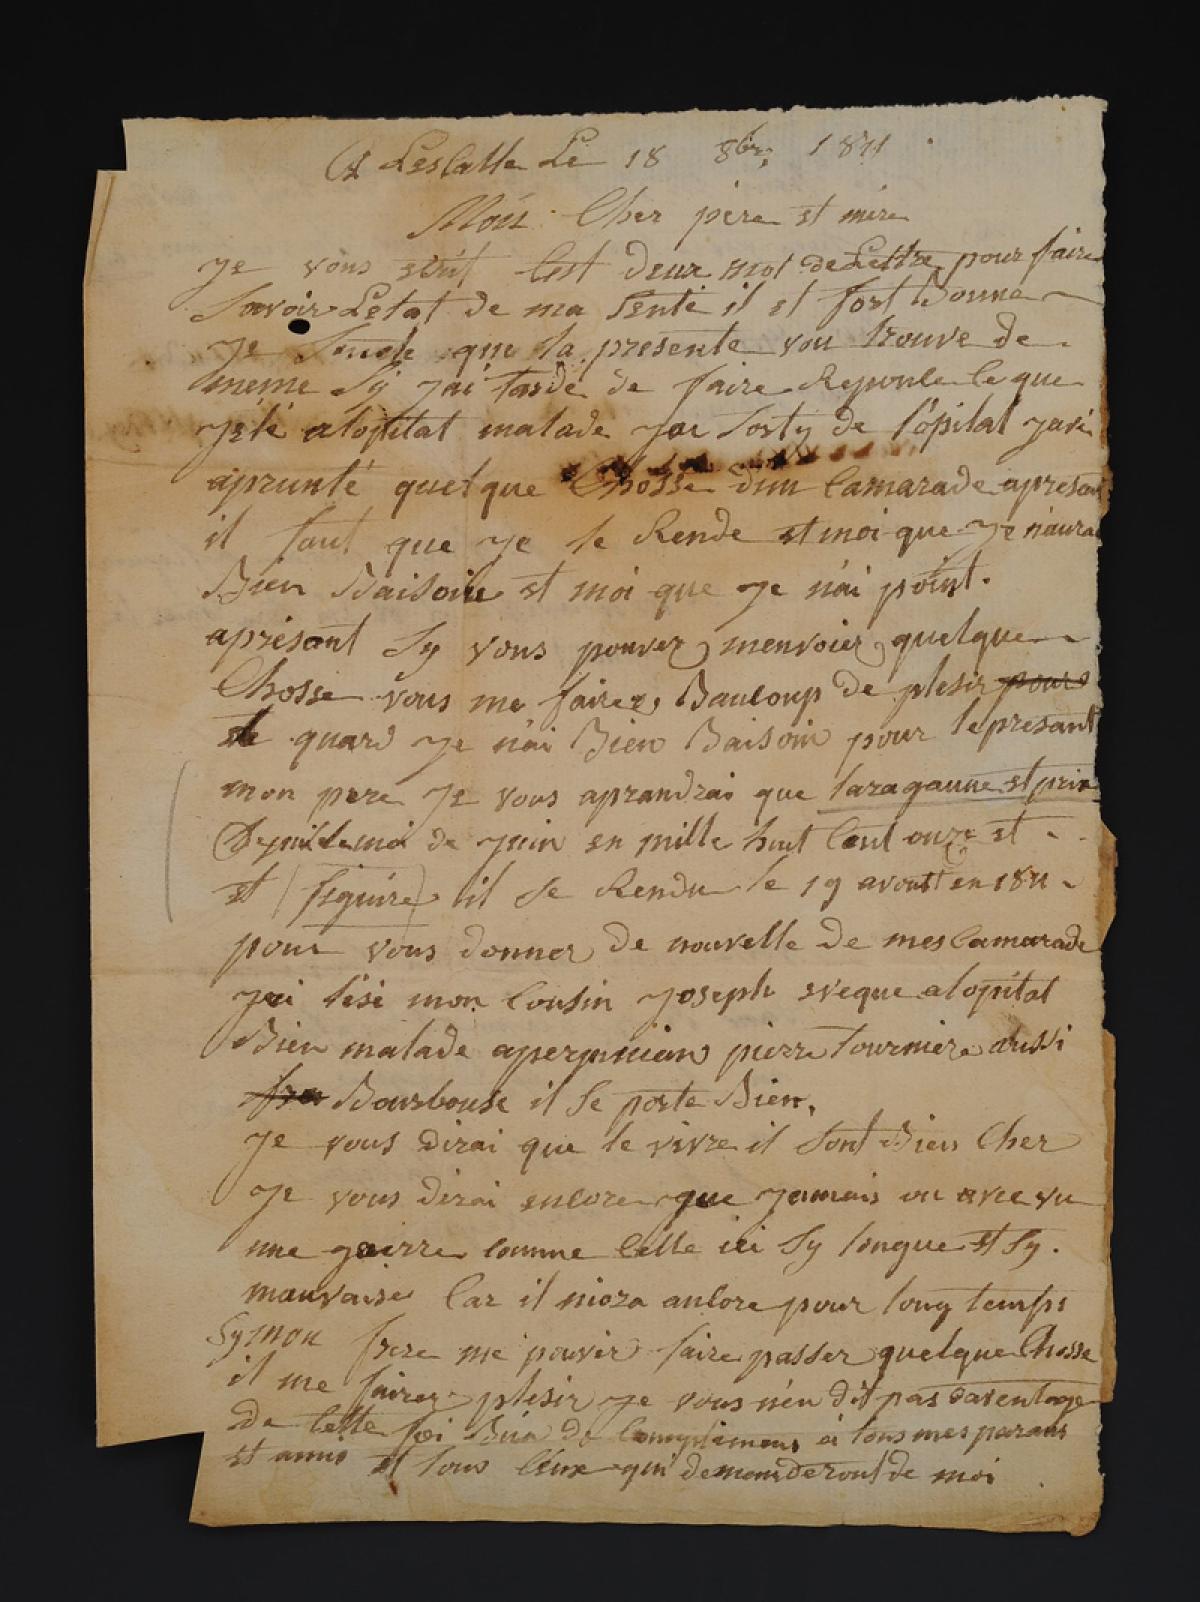 A Lescalle Le 18 8bre 1811
Mon Cher père et mère
Je vous écrit Cest deux mot de Lettre pour faire
Savoir Letat de ma Senté il et fort Bonne
Je Souete que la presente vou trouve de
meme Sy jai tardé de faire Reponse Ce que
jété alopital malade jai Sorty de l'opital javé
aprunté quelque Chosse dun Camarade apresant
il faut que je le Rende et moi que je naura
Bien Baisoin et moi que je nai point.
aprésant Sy vous pouvez menvoier quelque
Chosse vous me fairez Baucoup de plesir pour
de quard je nai Bien Baisoin pour le presant
mon pere je vous aprandrai que taragaune et prix
Depuis le moi de juin en mille huit Cent onze et
et figuire il se Rendu le 19 avoutt en 1811
pour vous donner de nouvelle de mes Camarade
jai lésé mon Cousin joseph eveque alopital
Bien malade aperpinian pierre tournier aussi
Bourbouse il Se porte Bien,
Je vous dirai que le vivre il Sont Bien Cher
Je vous dirai encore que jamais on avee vu
une gairre comme Celle ici Sy longue et Sy.
mauvaise Car il niora ancore pour long temps
Sy mon frere me pouvér faire passer quelque Chosse
il me fairez plesir je vous nen dit pas daventage
de Cette foi Bien de Complimens à tous mes parans
et amis et tous Ceux qui demanderont de moi